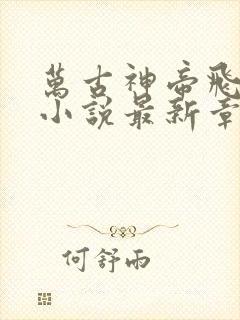 萬古神帝飛
小說最新章
何舒雨